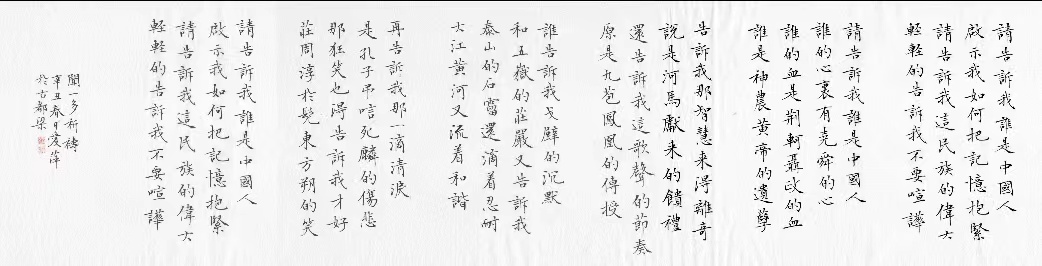 請告訴我誰是中國人
啟示我如何把記憶抱緊
請告訴我這民族的偉大
輕輕的告訴我不要喧譁
請告訴我誰是中國人
誰的心裏有堯舜的心
誰的血是荆軻聶政的血
誰是神農黃帝的遺孽
告訴我那智慧来得離奇
說是河馬獻来的饋禮
還告訴我這歌聲的節奏
原是九苞鳳凰的傳授
誰告訴我戈壁的沉默
和五嶽的莊嚴又告訴我
泰山的石霤還滴着忍耐
大江黃河又流着和諧
再告訴我那一滴清淚
是孔子弔唁死麟的傷悲
那狂笑也得告訴我才好
莊周淳于髡東方朔的笑
請告訴我誰是中國人
啟示我如何把記憶抱緊
請告訴我這民族的偉大
輕輕的告訴我不要喧譁
聞一多祈禱
辛丑春月愛萍
於古都梁